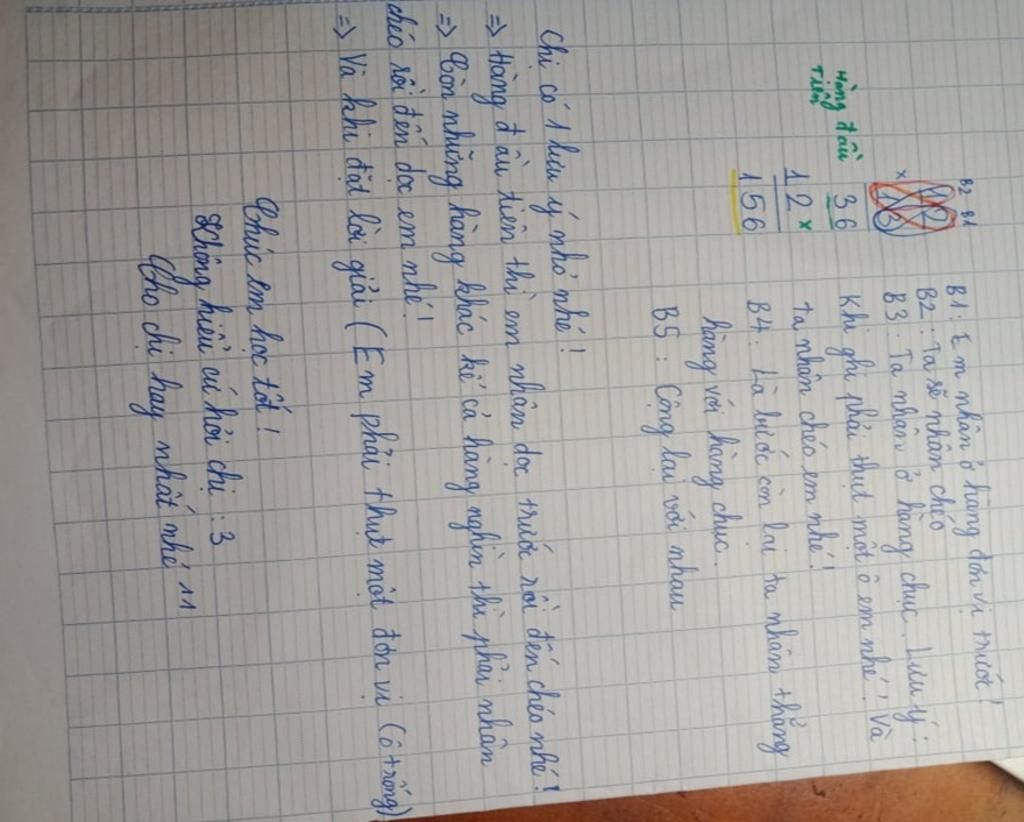 B2 B1
12
x 13
36
12 x
156
Hàng đầu
Tiên
B1: Em nhân ở hàng đơn vị trước!
B2: Ta sẽ nhân chéo
B3: Ta nhân ở hàng chục. Lưu ý:
Khi ghi phải thụt một ô em nhé! Và
ta nhân chéo em nhé!
B4: Là bước còn lại ta nhân thẳng
hàng với hàng chục.
B5: Cộng lại với nhau
Chị có 1 lưu ý nhỏ nhé!
=> Hàng đầu tiên thì em nhân dọc trước rồi đến chéo nhé!
=> Còn những hàng khác kể cả hàng nghìn thì phải nhân
chéo rồi đến dọc em nhé!
=> Và khi đặt lời giải (Em phải thụt một đơn vị (ô trống)
Chúc em học tốt!
Không hiểu cứ hỏi chị :3
Cho chị hay nhất nhé ^^